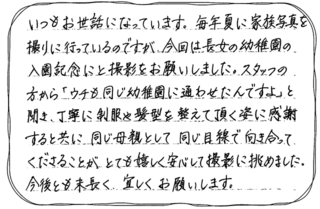 いつもお世話になっています。毎年夏に家族写真を
撮りに行っているのですが、今回は長女の幼稚園の
入園記念にと撮影をお願いしました。スタッフの
方から「ウチも同じ幼稚園に通わせたんですよ」と
聞き、丁寧に制服や髪型を整えて頂く姿に感謝
すると共に、同じ母親として同じ目線で向き合って
くださることが、とても嬉しく安心して撮影に挑めました。
今後とも末長く、宜しくお願いします。